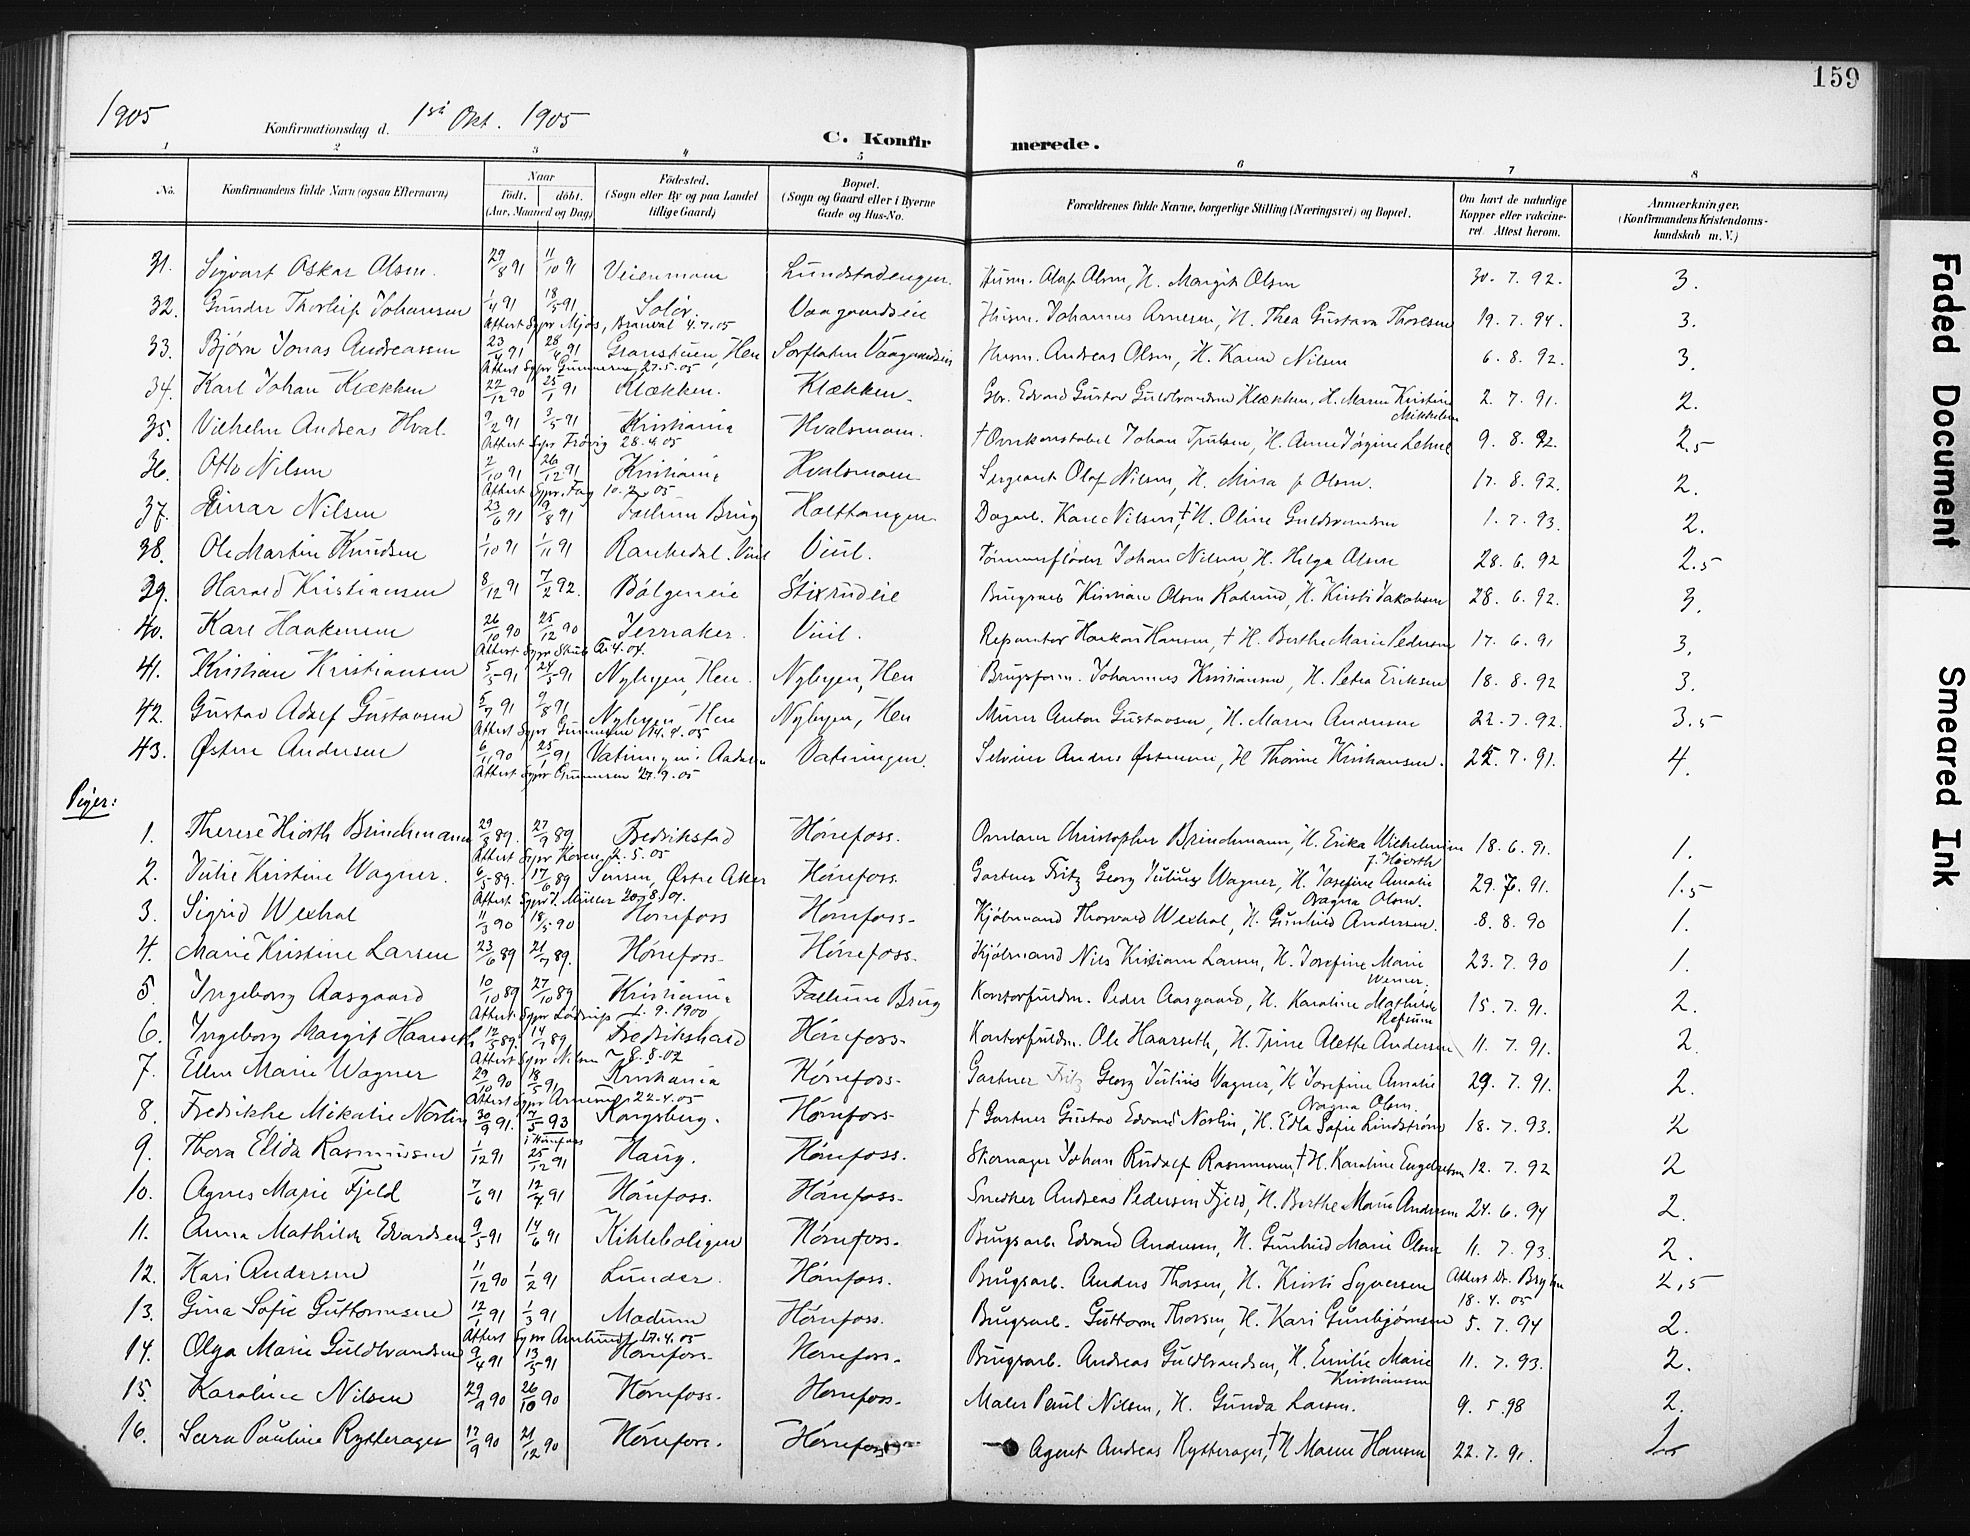 159
1905
Konfirmationsdag d. 1ste Okt. 1905
C. Konfirmerede.
1 2 3 4 5 6 7 8
No.
Konfirmandens fulde Navn (ogsaa Efternavn)
Naar
födt. döbt.
(Aar, Maaned og Dag)
Födested.
(Sogn eller By og paa Landet tillige Gaard)
Bopæl.
(Sogn og Gaard eller i Byerne Gade og Hus-No.
Forældrenes fulde Navne, borgerlige Stilling (Næringsvei) og Bopæl.
Om havt de naturlige Kopper eller vakcineret. Attest herom.
Anmærkninger.
(Konfirmandens Kristendomskundskab m. V.)
31. Sigvart Oskar Olsen. 29/8 91 11/10 91 Veienmoen Lundstadengen. Husm. Olaf Olsen, H. Margit Olsen 30. 7. 92. 3.
32. Gunder Thorleif Johansen 1/4 91 18/5 91 Solör. Vaagaardseie Husm. Johannes Arnesen, H. Thea Gustava Thoresen 19. 7. 94. 3.
Attest Sypr Mjøs, Brandval 4.7.15
33. Bjørn Jonas Andreassen 23/4 91 28/4 91 Granstuen, Hen Sorflaten Vaagaardseie Husm. Andreas Olsen, H. Karen Nilsen 6. 8. 92. 3.
Attest Sypr Gunnersen 27.5.05
34. Karl Johan Klækken 22/12 90 25/1 91 Klækken. Klækken. Gbr. Edvard Gustav Guldbrandsen Klækken, H. Maren Kristine Mikkelsen 2. 7. 91. 2.
35. Vilhelm Andreas Hval. 9/2 91 3/5 91 Kristiania Hvalsmoen. † Overkonstabel Johan Trulsen, H. Anne Jørgine Lehne 9. 8. 92. 2.5
Attest Sypr Frøvig 28.4.05
36. Otto Nilsen 2/10 91 26/12 91 Kristiania Hvalsmoen Sergeant Olaf Nilsen, H. Mina f. Olsen. 17. 8. 92. 2.
Attest Sypr. Fag 10.7.05
37. Einar Nilsen 23/6 91 9/8 91 Follum Brug Holttangen Dagarb. Karl Nilsen, † H. Oline Guldbrandsen 1. 7. 93. 2.
38. Ole Martin Knudsen 1/10 91 1/11 91 Raukedal. Viul Viul. Tømmerfløder Johan Nilsen, H. Helga Olsen 28. 6. 92 2.5
39. Harald Kristiansen 8/12 91 7/2 92. Bölgeneie Stixrudeie Brugsarb Kristian Olsen Rodmid, H. Kristi Jakobsen 28. 6. 92. 3.
40. Karl Haakensen 26/10 90 25/12 90 Jernaker. Viul. Repantør Haakon Hansen, † H. Berthe Marie Pedersen 17. 6. 91 3.
41. Kristian Kristiansen 5/5 91 24/5 91 Nybyen, Hen Nybyen, Hen Brugsform. Johannes Kristiansen, H. Petra Eriksen 18. 8. 92 3.
42. Gustav Adolf Gustavsen 5/7 91 9/8 91 Nybyen, Hen Nybyen, Hen Murer Anton Gustavsen, H. Maren Andersen 22. 7. 92. 3.5
Attest Sypr Gunnersen 14.4.05
43. Østen Andersen 6/11 90 25/1 91 Vatningen i Aadalen Vatningen. Selveier Anders Østensen, H Thorine Kristiansen. 25. 7. 91. 4.
Attest Sypr Gunnersen 27.9.05
Piger:
1. Therese Hiorth Brinchmann 29/8 89. 27/9 89. Fredrikstad Hönefoss. Overlærer Christopher Brinchmann, H. Erika Wilhelmine f. Hiorth 18. 6. 91. 1.
Attest Sypr Koren 2.5.05
2. Julie Kristine Wagner. 6/5 89. 17/6 89 Sinsen, Østre Aker Hönefoss. Gartner Fritz Georg Julius Wagner, H. Josefine Amalie Ovagna Olsen. 29. 7. 91. 1.5
Attest Sypr J. Müller 20.8.04.
3. Sigrid Wexhal 11/3 90 18/5 90 Hönefoss Hönefoss. Kjöbmand Thorvald Wexhal, H. Gunhild Andersen. 8. 8. 90 1.
4. Marie Kristine Larsen 23/6 89 21/7 89. Hönefoss. Hönefoss. Kjöbmand Nils Kristian Larsen, H. Josefine Marie Werner. 23. 7. 90 1.
5. Ingeborg Aasgaard 10/10 89 27/10 89 Kristiania Follum Brug Kontorfuldm. Peder Aasgaard, H. Karoline Mathilde Refsum 15. 7. 91. 2.
Attest Sypr Lødrup 1.9.1900
6. Ingeborg Margit Haarseth 12/5 89. 14/7 89 Fredrikshald Hönefoss. Kontorfuldm. Ole Haarseth, H. Trine Alette Andersen 11. 7. 91. 2.
Attest Sypr Nilsen 8.8.02
7. Ellen Marie Wagner 29/10 90 18/5 91 Kristiania Hönefoss. Gartner Fritz Georg Julius Wagner, H Josefine Amalie Ovagna Olsen. 29. 7. 91. 2.
Attest Sypr Arnesen 22.4.05
8. Fredrikke Mikalie Norlin 30/9 91. 7/5 93 i Hönefoss Kongsberg. Hönefoss. † Gartner Gustav Edvard Norlin, H. Edla Sofie Lindstrøm 18. 7. 93. 2
9. Thora Elida Rasmussen 1/12 91 25/12 91 Haug. Hönefoss. Skomager Johan Rudolf Rasmussen, † H. Karoline Engebretsen 12. 7. 92 2
10. Agnes Marie Fjeld 7/6 91 12/4 91 Hönefoss. Hönefoss. Snedker Andreas Pedersen Fjeld, H. Berthe Marie Andersen 24. 6. 94 2.
11. Anna Mathilde Edvardsen 9/5 91 14/6 91 Kihleboligen Hönefoss. Brugsarb. Edvard Andersen, H. Gunhild Marie Olsen 11. 7. 93. 2.
12. Kari Andersen 11/12 90 1/2 91 Lunder. Hönefoss. Brugsarb. Anders Thorsen, H. Kristi Syversen Attest Dr. Bryhn 18.4.05 2,5
13. Gina Sofie Guttormsen 12/1 91 1/3 91 Modum Hönefoss. Brugsarb. Guttorm Thorsen, H. Kari Gunbjørnsen 5. 7. 94 2.
Attest Sypr Amlund 17.4.05
14. Olga Marie Guldbrandsen 9/4 91 13/5 91 Hönefoss. Hönefoss. Brugsarb. Andreas Guldbrandsen, H. Emilie Marie Kristiansen 11. 7. 93. 2.
15. Karoline Nilsen 29/9 90 26/10 90 Hönefoss. Hönefoss. Maler Paul Nilsen, H. Gunda Larsen. 9. 5. 98 2.
16. Sara Pauline Rytterager 17/9 90 21/12 90 Hönefoss. Hönefoss Agent Andreas Rytterager, † H Maren Hansen 22. 7. 91.
Faded Document
Smeared Ink